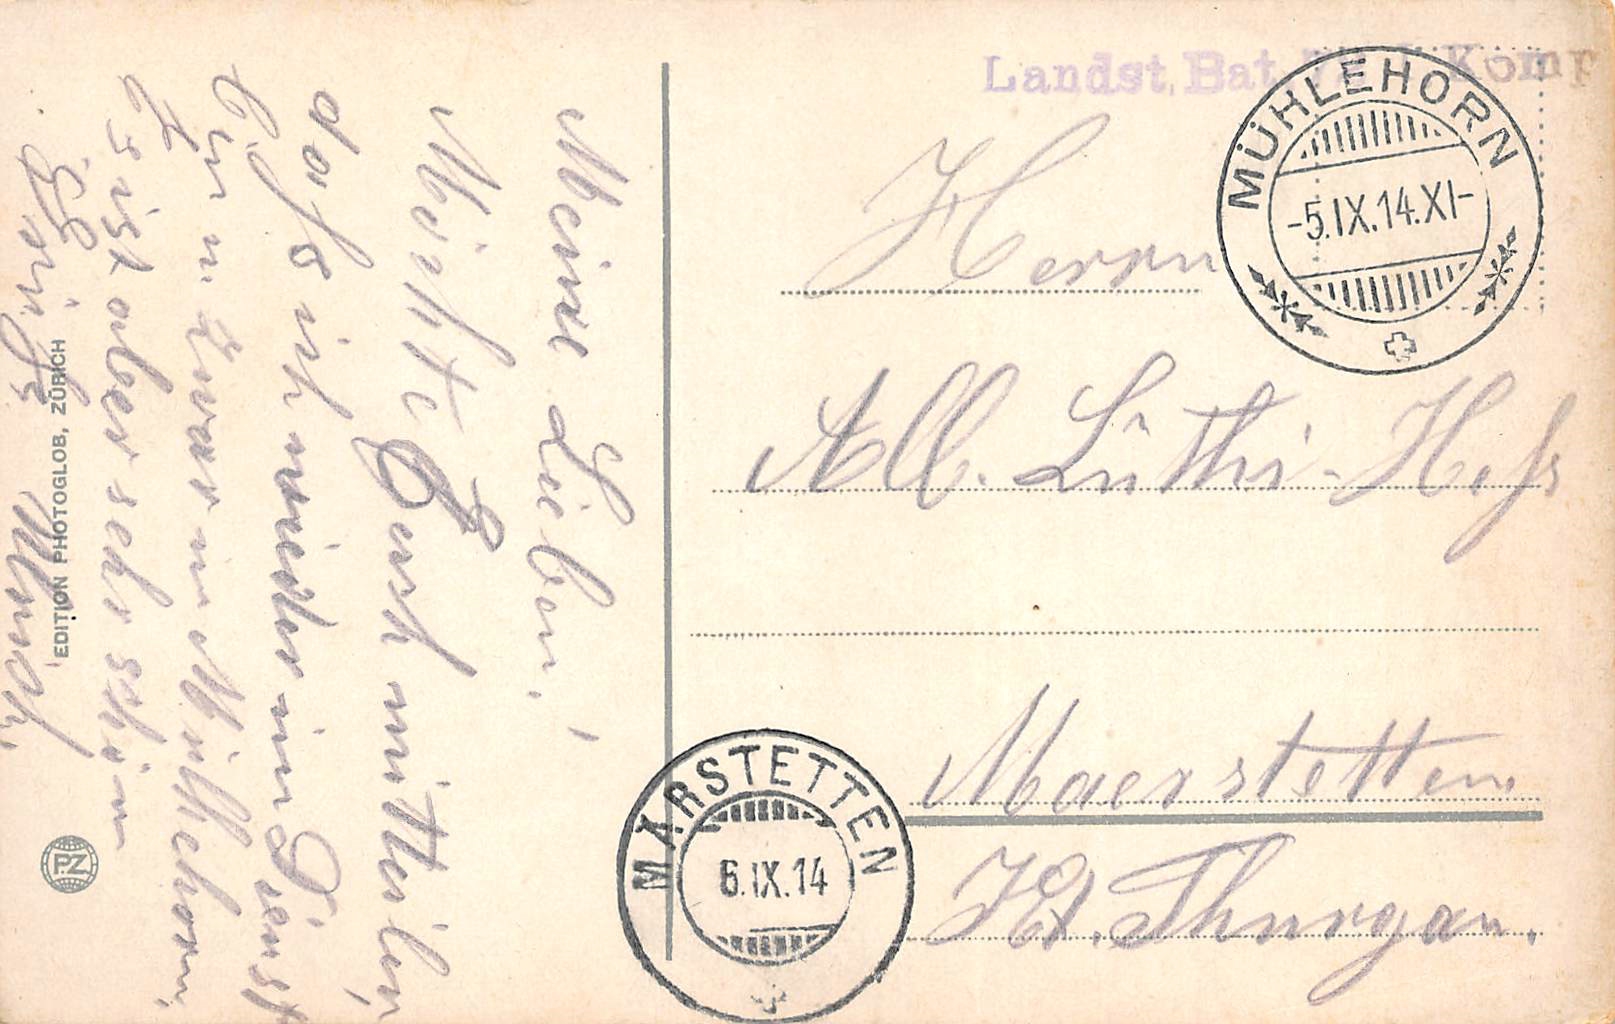 Landst. Bat. Komp
MÜHLEHORN
-5.IX.14.XI-
Herrn
Alb. Lüthi-Hess
Maerstetten
Kt. Thurgau.
MÄRSTETTEN
6.IX.14
Meine Lieben!
Möchte Euch mitteilen,
dass ich wieder im Dienst
bin u. zwar in Mühlehorn,
Es ist aber sehr schön
EDITION PHOTOGLOB, ZÜRICH
PZ